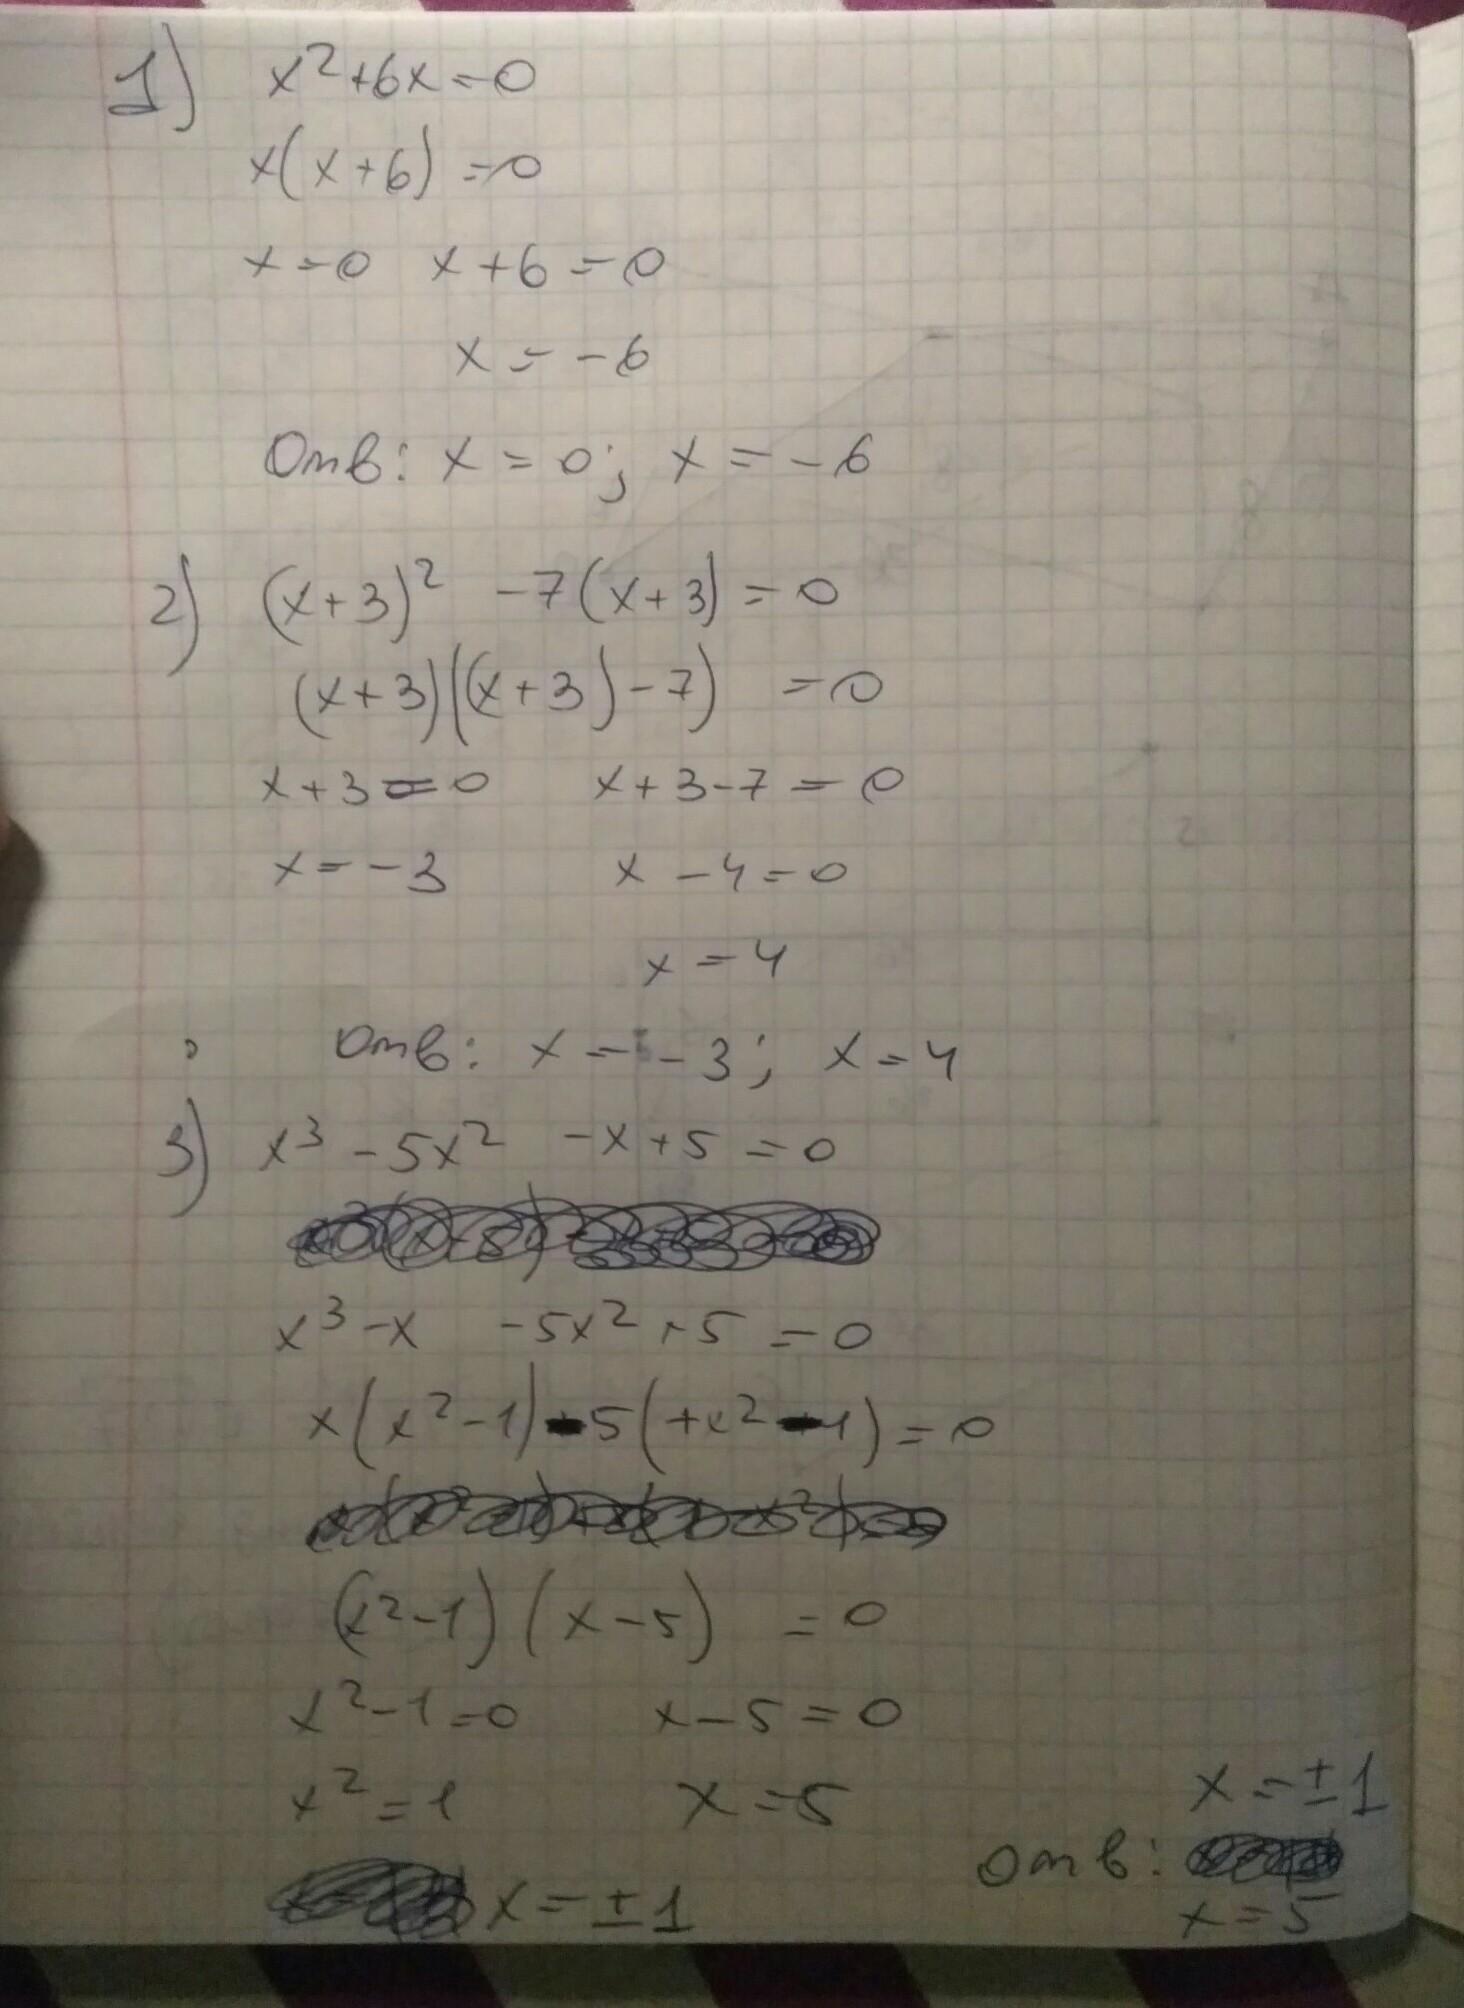 1) x²+6x=0
x(x+6)=0
x=0 x+6=0
x=-6
Отв: x=0; x=-6
2) (x+3)² -7(x+3)=0
(x+3)((x+3)-7) =0
x+3=0 x+3-7=0
x=-3 x-4=0
x=4
Отв: x=-3; x=4
3) x³-5x² -x+5=0
x³-x -5x²+5=0
x(x²-1)-5(+x²-1)=0
(x²-1)(x-5) =0
x²-1=0 x-5=0
x²=1 x=5
x=±1
x=±1
Отв:
x=5